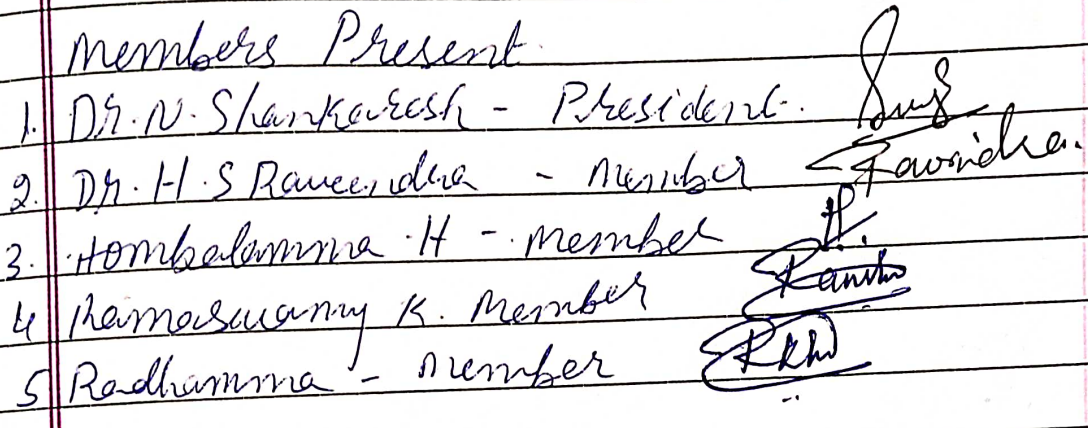 Members Present.
1. Dr. N. Shankaresh - President.
2. Dr. H. S Raveendra - Member Raveendra.
3. Hombalamma .H - Member H.
4 Ramaswamy K. Member
5 Radhamma - Member